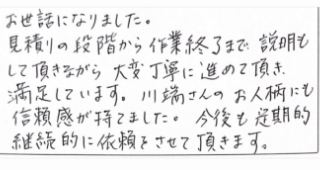 お世話になりました。
見積りの段階から作業終了まで、説明も
して頂きながら大変丁寧に進めて頂き、
満足しています。川端さんのお人柄にも
信頼感が持てました。今後も定期的
継続的に依頼をさせて頂きます。